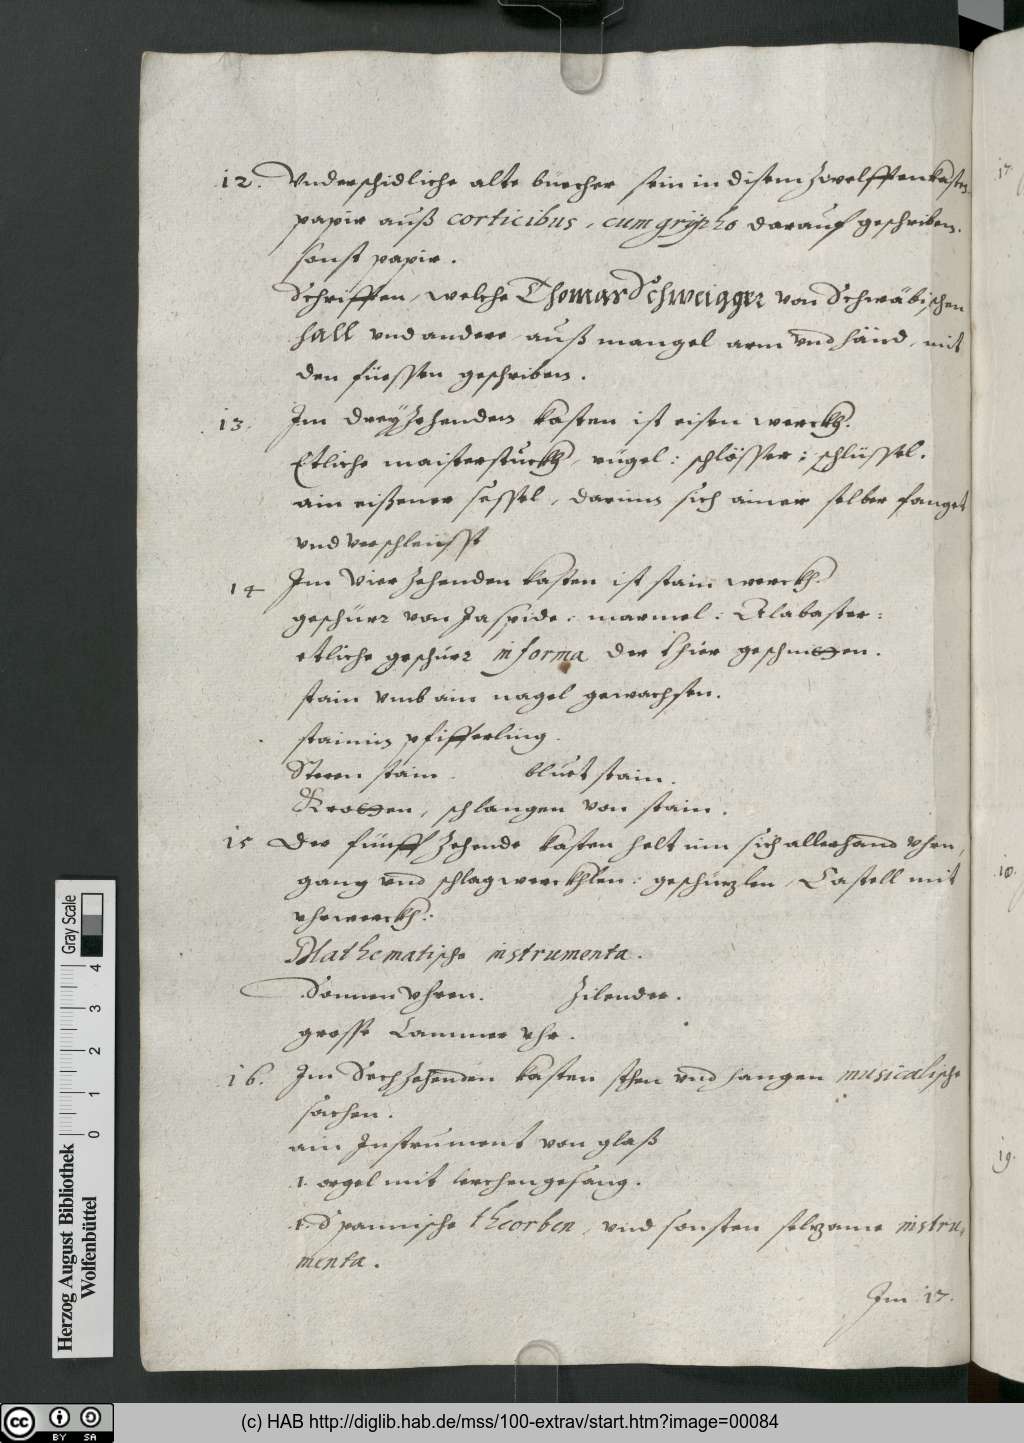 12. Vnderschidliche alte büecher sein in disem zwelfften kasten
papir auß corticibus, cum grypho darauf geschriben.
sonst papir.
Schrifften, welche Thomas Schweigger von Schwäbischen
hall vnd andere auß mangel arm vnd händ, mit
den füessen geschriben.
13. Im dreyzehenden kasten ist eisen werckh.
Etliche maisterstuckh, rügel: schlösser: schlüssel.
ain eißener sessel, darinn sich ainer selber fanget
vnd verschleusst
14 Im Vierzehenden kasten ist stain werckh.
geschürr von Jaspide: marmel: Alabaster:
etliche geschürr in forma der thier geschnitten.
stain vmb ain nagel gewachsen.
stainin pfifferling.
Steren stain. bluet stain.
Krotten, schlangen von stain.
15 Der fünffzehende kasten helt inn sich allerhand vhrn,
gang vnd schlagwerckhlen: geschürzlen, Castell mit
vhrwerckh:
Mathematische instrumenta.
Sonnen vhren. Zilender.
grosse Cammer vhr.
16. Im Sechzehenden kasten sthen vnd hangen musicalische
sachen.
ain Instrument von glaß
1. orgel mit lerchengesang.
1. Spannische theorben, vnd sonsten selzame instru-
menta.
Im 17.
17
18.
19.
Gray Scale
0 1 2 3 4
Herzog August Bibliothek
Wolfenbüttel
cc BY SA
(c) HAB http://diglib.hab.de/mss/100-extrav/start.htm?image=00084